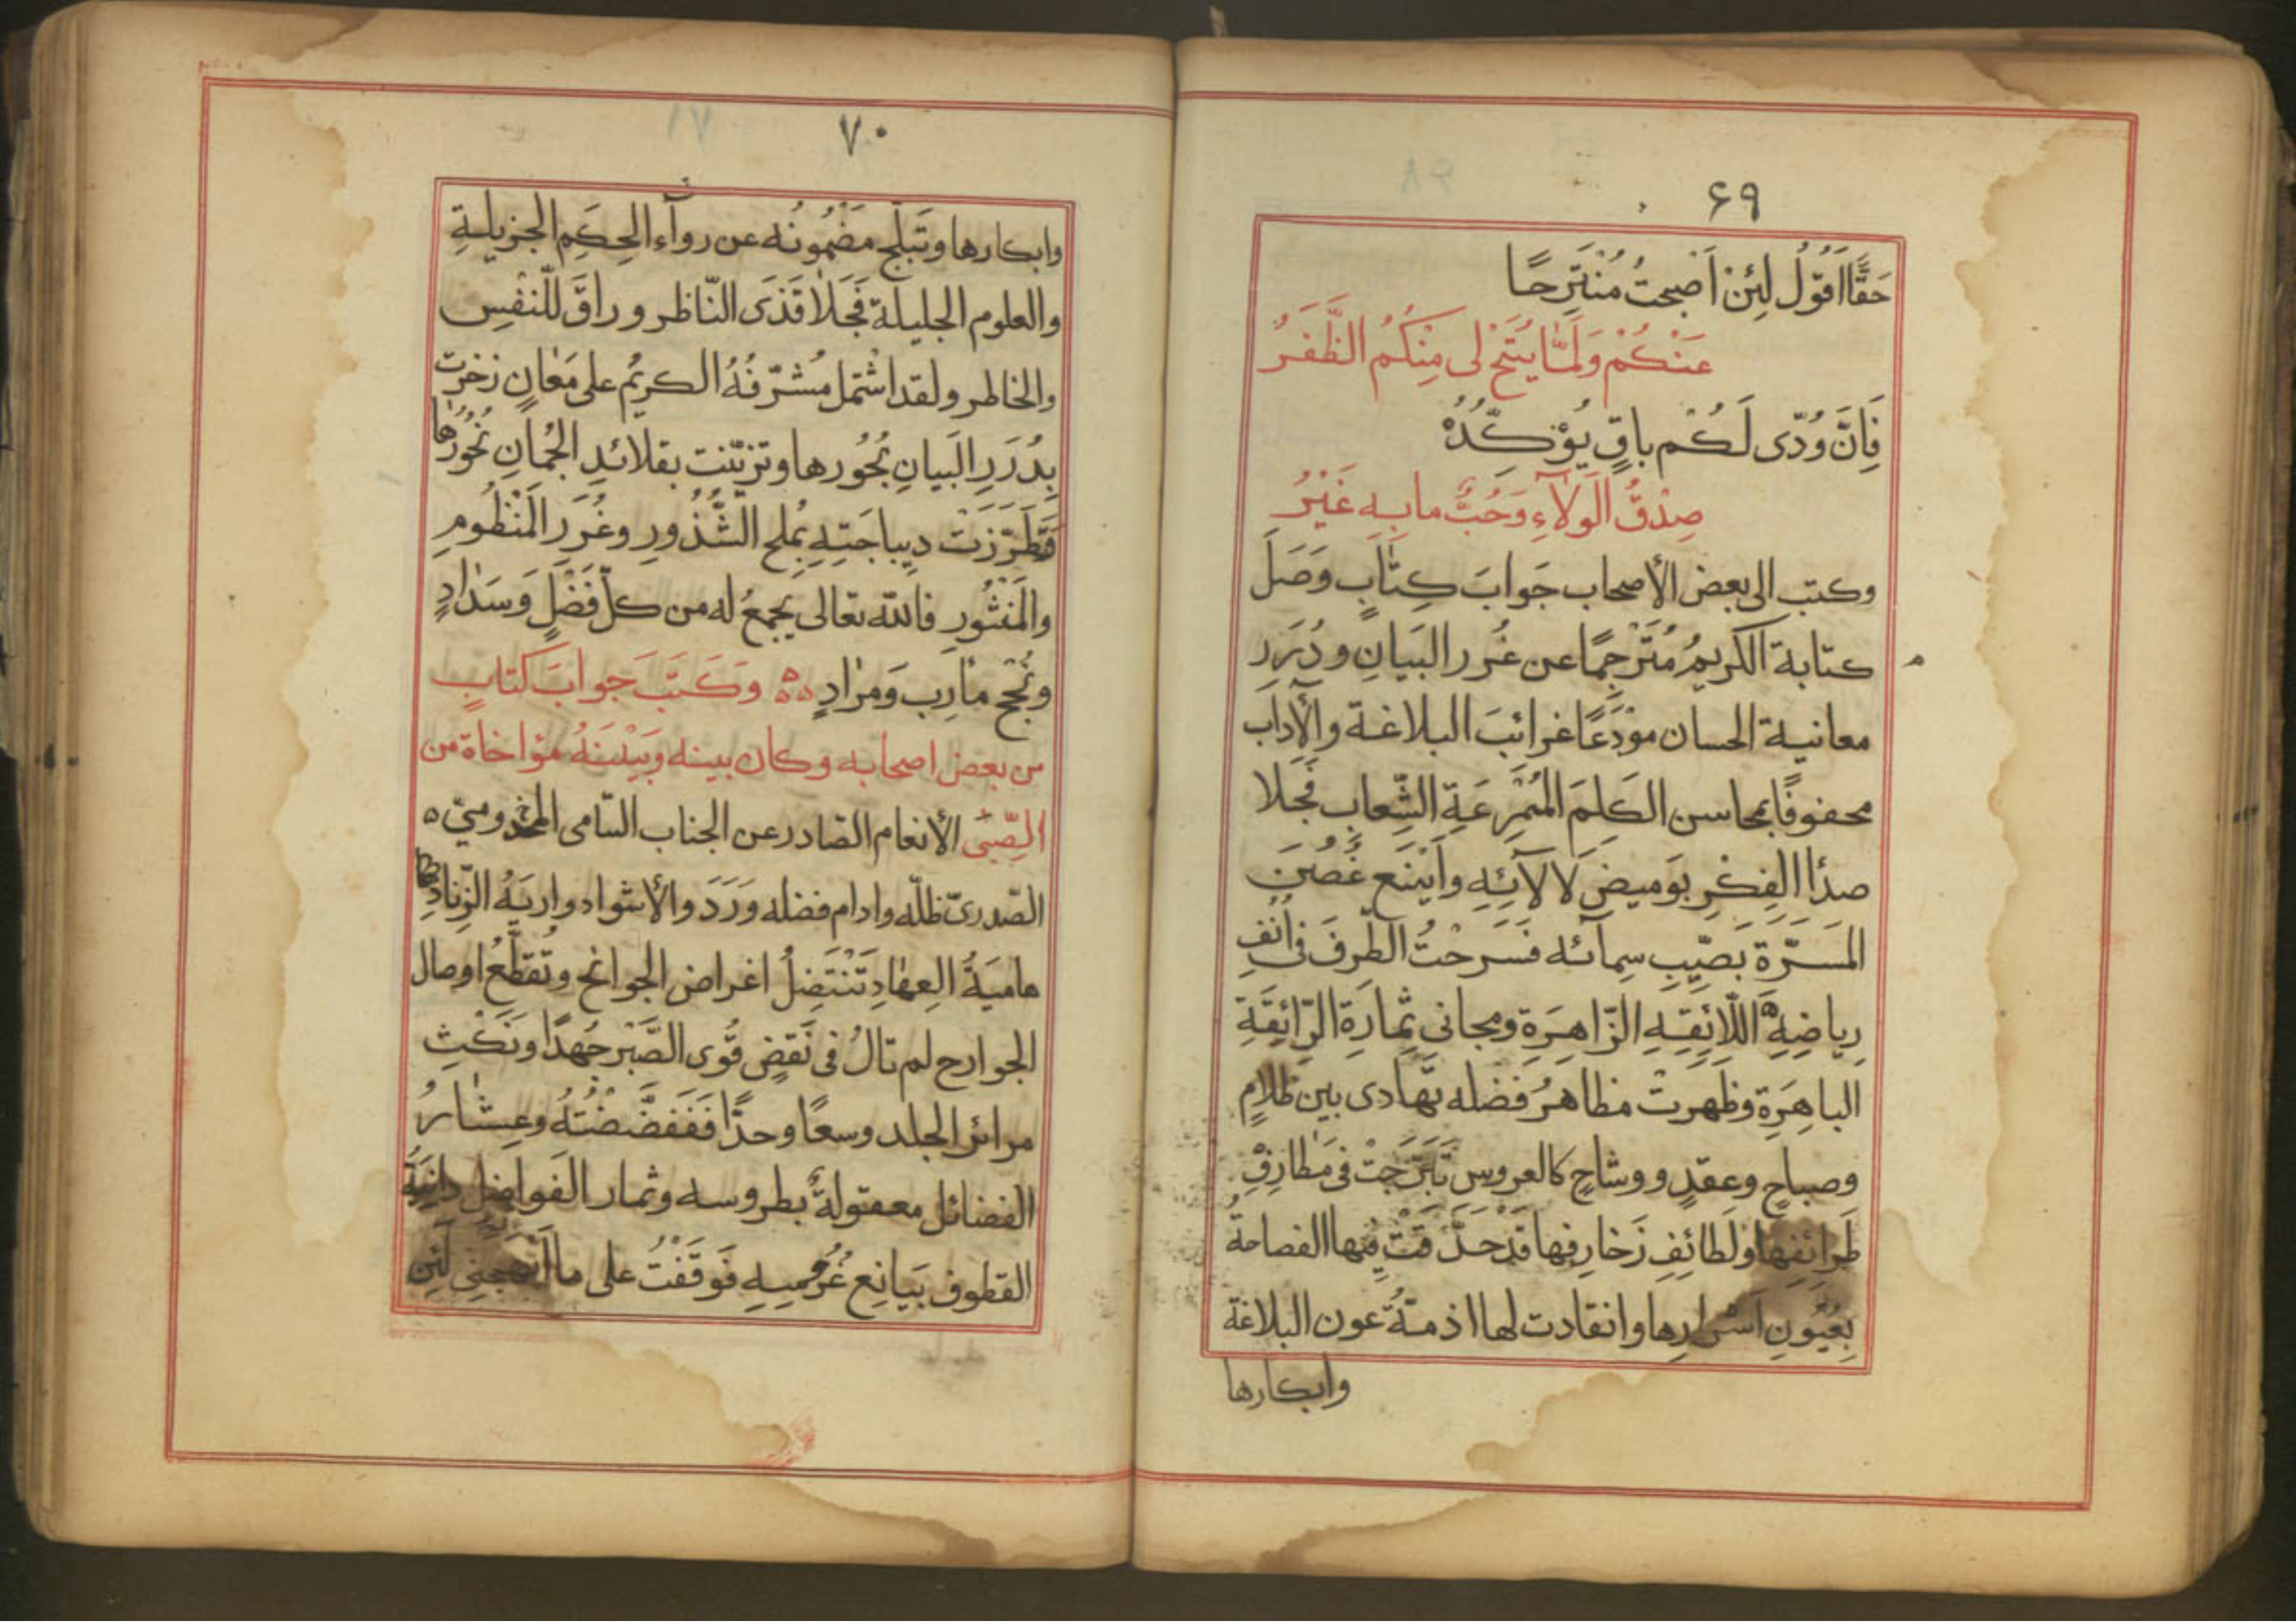 ٦٩
حَقًّا اَقُوْلُ لَئِنْ اَضْبحتُ مُنْتَزِحًا
عَنْكُمْ وَلَمَّا يُتَحْ لى مِنْكُمُ الظَّفَرُ
فَاِنَّ وُدّى لَكُم باقٍ يُؤَكِّدُهُ
صِدْقُ الوَلآءِ وَحُبٌّ مابِهِ غَيْرُ
وكتب الى بعض الأصحاب جَوابَ كِتٰابٍ وَصَلَ
كتابة الكريمُ مُتَرْجِمًا عن غُرر البَيانِ ودُرَرِ
معانية الحسان مُوْدَعًا غرائبَ البلاغة والآداب
محفوفًا بمحاسن الكَلِمَ المُمْرِعَةِ الشِّعاب فَجَلا
صدأ الفِكْرِ بوَميضِ لَالآئِهِ واَيْنَع غُصْنَ
المَسَرّة بَصَيِّبِ سِمآئه فَسَرحْتُ الطّرفَ فى اُنُفِ
رِياضِهِ اللّائِقِهِ الزّاهِرَةِ ومجانى ثِمارَةِ الرّائِقَةِ
الباهِرَةِ وظَهرتْ مظاهرُ فضله تَهادى بين ظلامٍ
وصباحٍ وعقدٍ ووشاحٍ كالعروس تَبَرَّجَتْ فى مَطارِفِ
طَرائِفِها ولَطائِفِ زَخارِفِها قَدْ حَدَّقَتْ فيها الفصاحةُ
بِعُيُونِ اَسْرارِها وانقادت لها اذمةُ عون البلاغة
وابكارها
٧٠
وابكارها وتَبَلّج مَضْمُونُه عن روآء الحِكَمِ الجزيلةِ
والعلوم الجليلة فَجَلاٰ قَذَى النّاظر وراقَ للنّفْسِ
والخاطر ولقد اشتمل مُشَرّفُهُ الكريمُ على مَعٰانٍ زخرت
بِدُرَرِ البَيانِ بُحُورها وتزيّنت بقلائدِ الجُمٰانِ نُحُورُها
فَتَطَرّزَتْ دِيباجَتِهِ بُملح الشُّذُورِ وغُرَرِ المَنْظُومِ
والمَنْثُورِ فالله تعالى يجمعُ له من كلّ فَضْلٍ وَسَدٰادٍ
ونُجْحِ مأرِب وَمرٰادٍ ه‍ه وَكَتَبَ جَوابَ كتابٍ
من بعض اصحابه وكان بينه وَبَيْنَهُ مؤاخاة من
الصِّبى الأنعام الصّادر عن الجناب السّامى المخدومىّ ه
الصّدرىّ ظلّه وادام فضله وَرَدَ والأشواد وارِيَةُ الزّنادِ
هاميَةُ العِهٰادِ تَنْتَضِلُ اغراض الجوانح وتُقَطِّعُ اوصال
الجوارح لم تالُ فى نَقْضِ قُوى الصَّبْر جُهدًا ونَكْثِ
مرائر الجلد وسعًا وحدًّا فَفَضَّضْتُهُ وعِشٰارُ
الفضائل معقولةٌ بطروسه وثمار الفَواضل دانِيَةُ
القطوف بَيَانِع غُرُوسِهِ فَوَقَفْتُ على ما اَبْهَجَنِى لَئِن